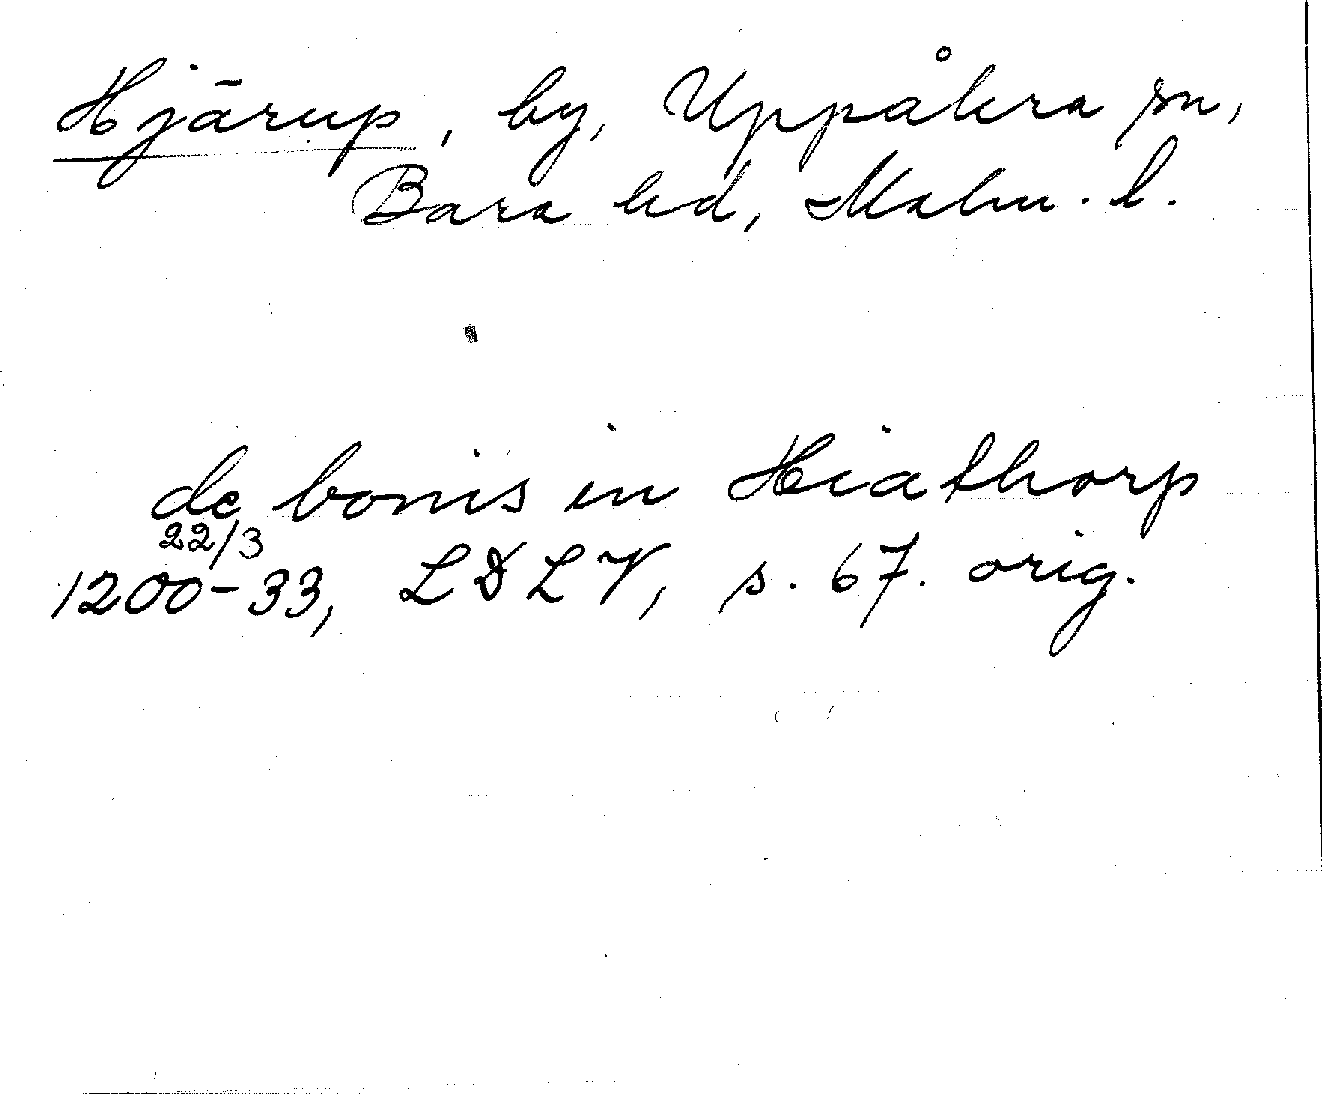 Hjärup, by, Uppåkra sn,
Bara hd, Malm. l.
de bonis in Hiathorp
22/3
1200-33, LDLV, s. 67. orig.